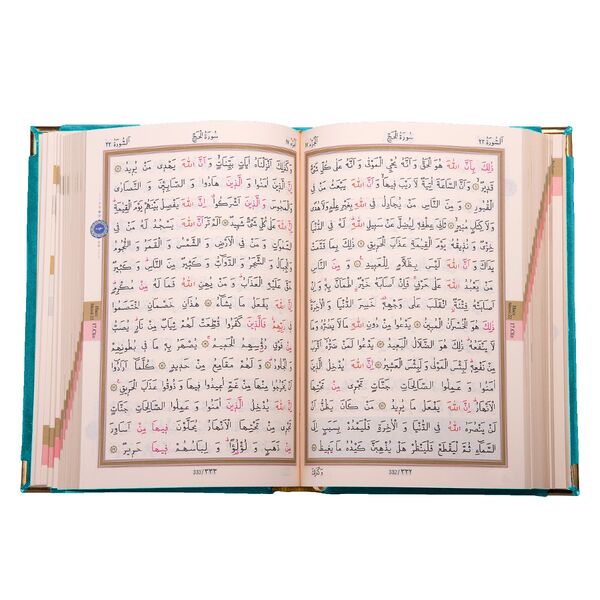 اَلسُّورَةُ ٢٢
سُورَةُ الْحَجِّ
ذٰلِكَ بِاَنَّ اللّٰهَ هُوَ الْحَقُّ وَاَنَّهُ يُحْيِ الْمَوْتٰى وَاَنَّهُ عَلٰى كُلِّ شَيْءٍ
قَدِيرٌ وَاَنَّ السَّاعَةَ اٰتِيَةٌ لَا رَيْبَ فِيهَا وَاَنَّ اللّٰهَ يَبْعَثُ مَنْ فِي
الْقُبُورِ وَمِنَ النَّاسِ مَنْ يُجَادِلُ فِي اللّٰهِ بِغَيْرِ عِلْمٍ وَلَا هُدًى
وَلَا كِتَابٍ مُنِيرٍ ثَانِيَ عِطْفِهِ لِيُضِلَّ عَنْ سَبِيلِ اللّٰهِ لَهُ فِي الدُّنْيَا
خِزْيٌ وَنُذِيقُهُ يَوْمَ الْقِيٰمَةِ عَذَابَ الْحَرِيقِ ذٰلِكَ بِمَا قَدَّمَتْ
يَدَاكَ وَاَنَّ اللّٰهَ لَيْسَ بِظَلَّامٍ لِلْعَبِيدِ وَمِنَ النَّاسِ مَنْ يَعْبُدُ
اللّٰهَ عَلٰى حَرْفٍ فَاِنْ اَصَابَهُ خَيْرٌ اطْمَاَنَّ بِهِ وَاِنْ
اَصَابَتْهُ فِتْنَةٌ انْقَلَبَ عَلٰى وَجْهِهِ خَسِرَ الدُّنْيَا وَالْاٰخِرَةَ
ذٰلِكَ هُوَ الْخُسْرَانُ الْمُبِينُ يَدْعُوا مِنْ دُونِ اللّٰهِ مَا لَا يَضُرُّهُ وَمَا
لَا يَنْفَعُهُ ذٰلِكَ هُوَ الضَّلَالُ الْبَعِيدُ يَدْعُوا لَمَنْ ضَرُّهُ اَقْرَبُ
مِنْ نَفْعِهِ لَبِئْسَ الْمَوْلٰى وَلَبِئْسَ الْعَشِيرُ اِنَّ اللّٰهَ يُدْخِلُ الَّذِينَ
اٰمَنُوا وَعَمِلُوا الصَّالِحَاتِ جَنَّاتٍ تَجْرِي مِنْ تَحْتِهَا
الْاَنْهَارُ اِنَّ اللّٰهَ يَفْعَلُ مَا يُرِيدُ مَنْ كَانَ يَظُنُّ اَنْ لَنْ
يَنْصُرَهُ اللّٰهُ فِي الدُّنْيَا وَالْاٰخِرَةِ فَلْيَمْدُدْ بِسَبَبٍ اِلَى
السَّمَاءِ ثُمَّ لْيَقْطَعْ فَلْيَنْظُرْ هَلْ يُذْهِبَنَّ كَيْدُهُ مَا يَغِيظُ
332/٣٣٢
وَكَذٰلِكَ
17.Cüz
اَلسُّورَةُ ٢٢
سُورَةُ الْحَجِّ
وَكَذٰلِكَ اَنْزَلْنَاهُ اٰيَاتٍ بَيِّنَاتٍ وَاَنَّ اللّٰهَ يَهْدِي مَنْ يُرِيدُ
اِنَّ الَّذِينَ اٰمَنُوا وَالَّذِينَ هَادُوا وَالصَّابِئِينَ وَالنَّصَارٰى
وَالْمَجُوسَ وَالَّذِينَ اَشْرَكُوا اِنَّ اللّٰهَ يَفْصِلُ بَيْنَهُمْ يَوْمَ الْقِيٰمَةِ
اِنَّ اللّٰهَ عَلٰى كُلِّ شَيْءٍ شَهِيدٌ اَلَمْ تَرَ اَنَّ اللّٰهَ يَسْجُدُ لَهُ مَنْ فِي
السَّمٰوَاتِ وَمَنْ فِي الْاَرْضِ وَالشَّمْسُ وَالْقَمَرُ وَالنُّجُومُ
وَالْجِبَالُ وَالشَّجَرُ وَالدَّوَابُّ وَكَثِيرٌ مِنَ النَّاسِ وَكَثِيرٌ
حَقَّ عَلَيْهِ الْعَذَابُ وَمَنْ يُهِنِ اللّٰهُ فَمَا لَهُ مِنْ مُكْرِمٍ
اِنَّ اللّٰهَ يَفْعَلُ مَا يَشَاءُ هٰذَانِ خَصْمَانِ اخْتَصَمُوا
فِي رَبِّهِمْ فَالَّذِينَ كَفَرُوا قُطِّعَتْ لَهُمْ ثِيَابٌ مِنْ نَارٍ يُصَبُّ
مِنْ فَوْقِ رُؤُسِهِمُ الْحَمِيمُ يُصْهَرُ بِهِ مَا فِي بُطُونِهِمْ
وَالْجُلُودُ وَلَهُمْ مَقَامِعُ مِنْ حَدِيدٍ كُلَّمَا اَرَادُوا اَنْ
يَخْرُجُوا مِنْهَا مِنْ غَمٍّ اُعِيدُوا فِيهَا وَذُوقُوا عَذَابَ الْحَرِيقِ
اِنَّ اللّٰهَ يُدْخِلُ الَّذِينَ اٰمَنُوا وَعَمِلُوا الصَّالِحَاتِ جَنَّاتٍ
تَجْرِي مِنْ تَحْتِهَا الْاَنْهَارُ يُحَلَّوْنَ فِيهَا مِنْ اَسَاوِرَ
مِنْ ذَهَبٍ وَلُؤْلُؤًا وَلِبَاسُهُمْ فِيهَا حَرِيرٌ
333/٣٣٣